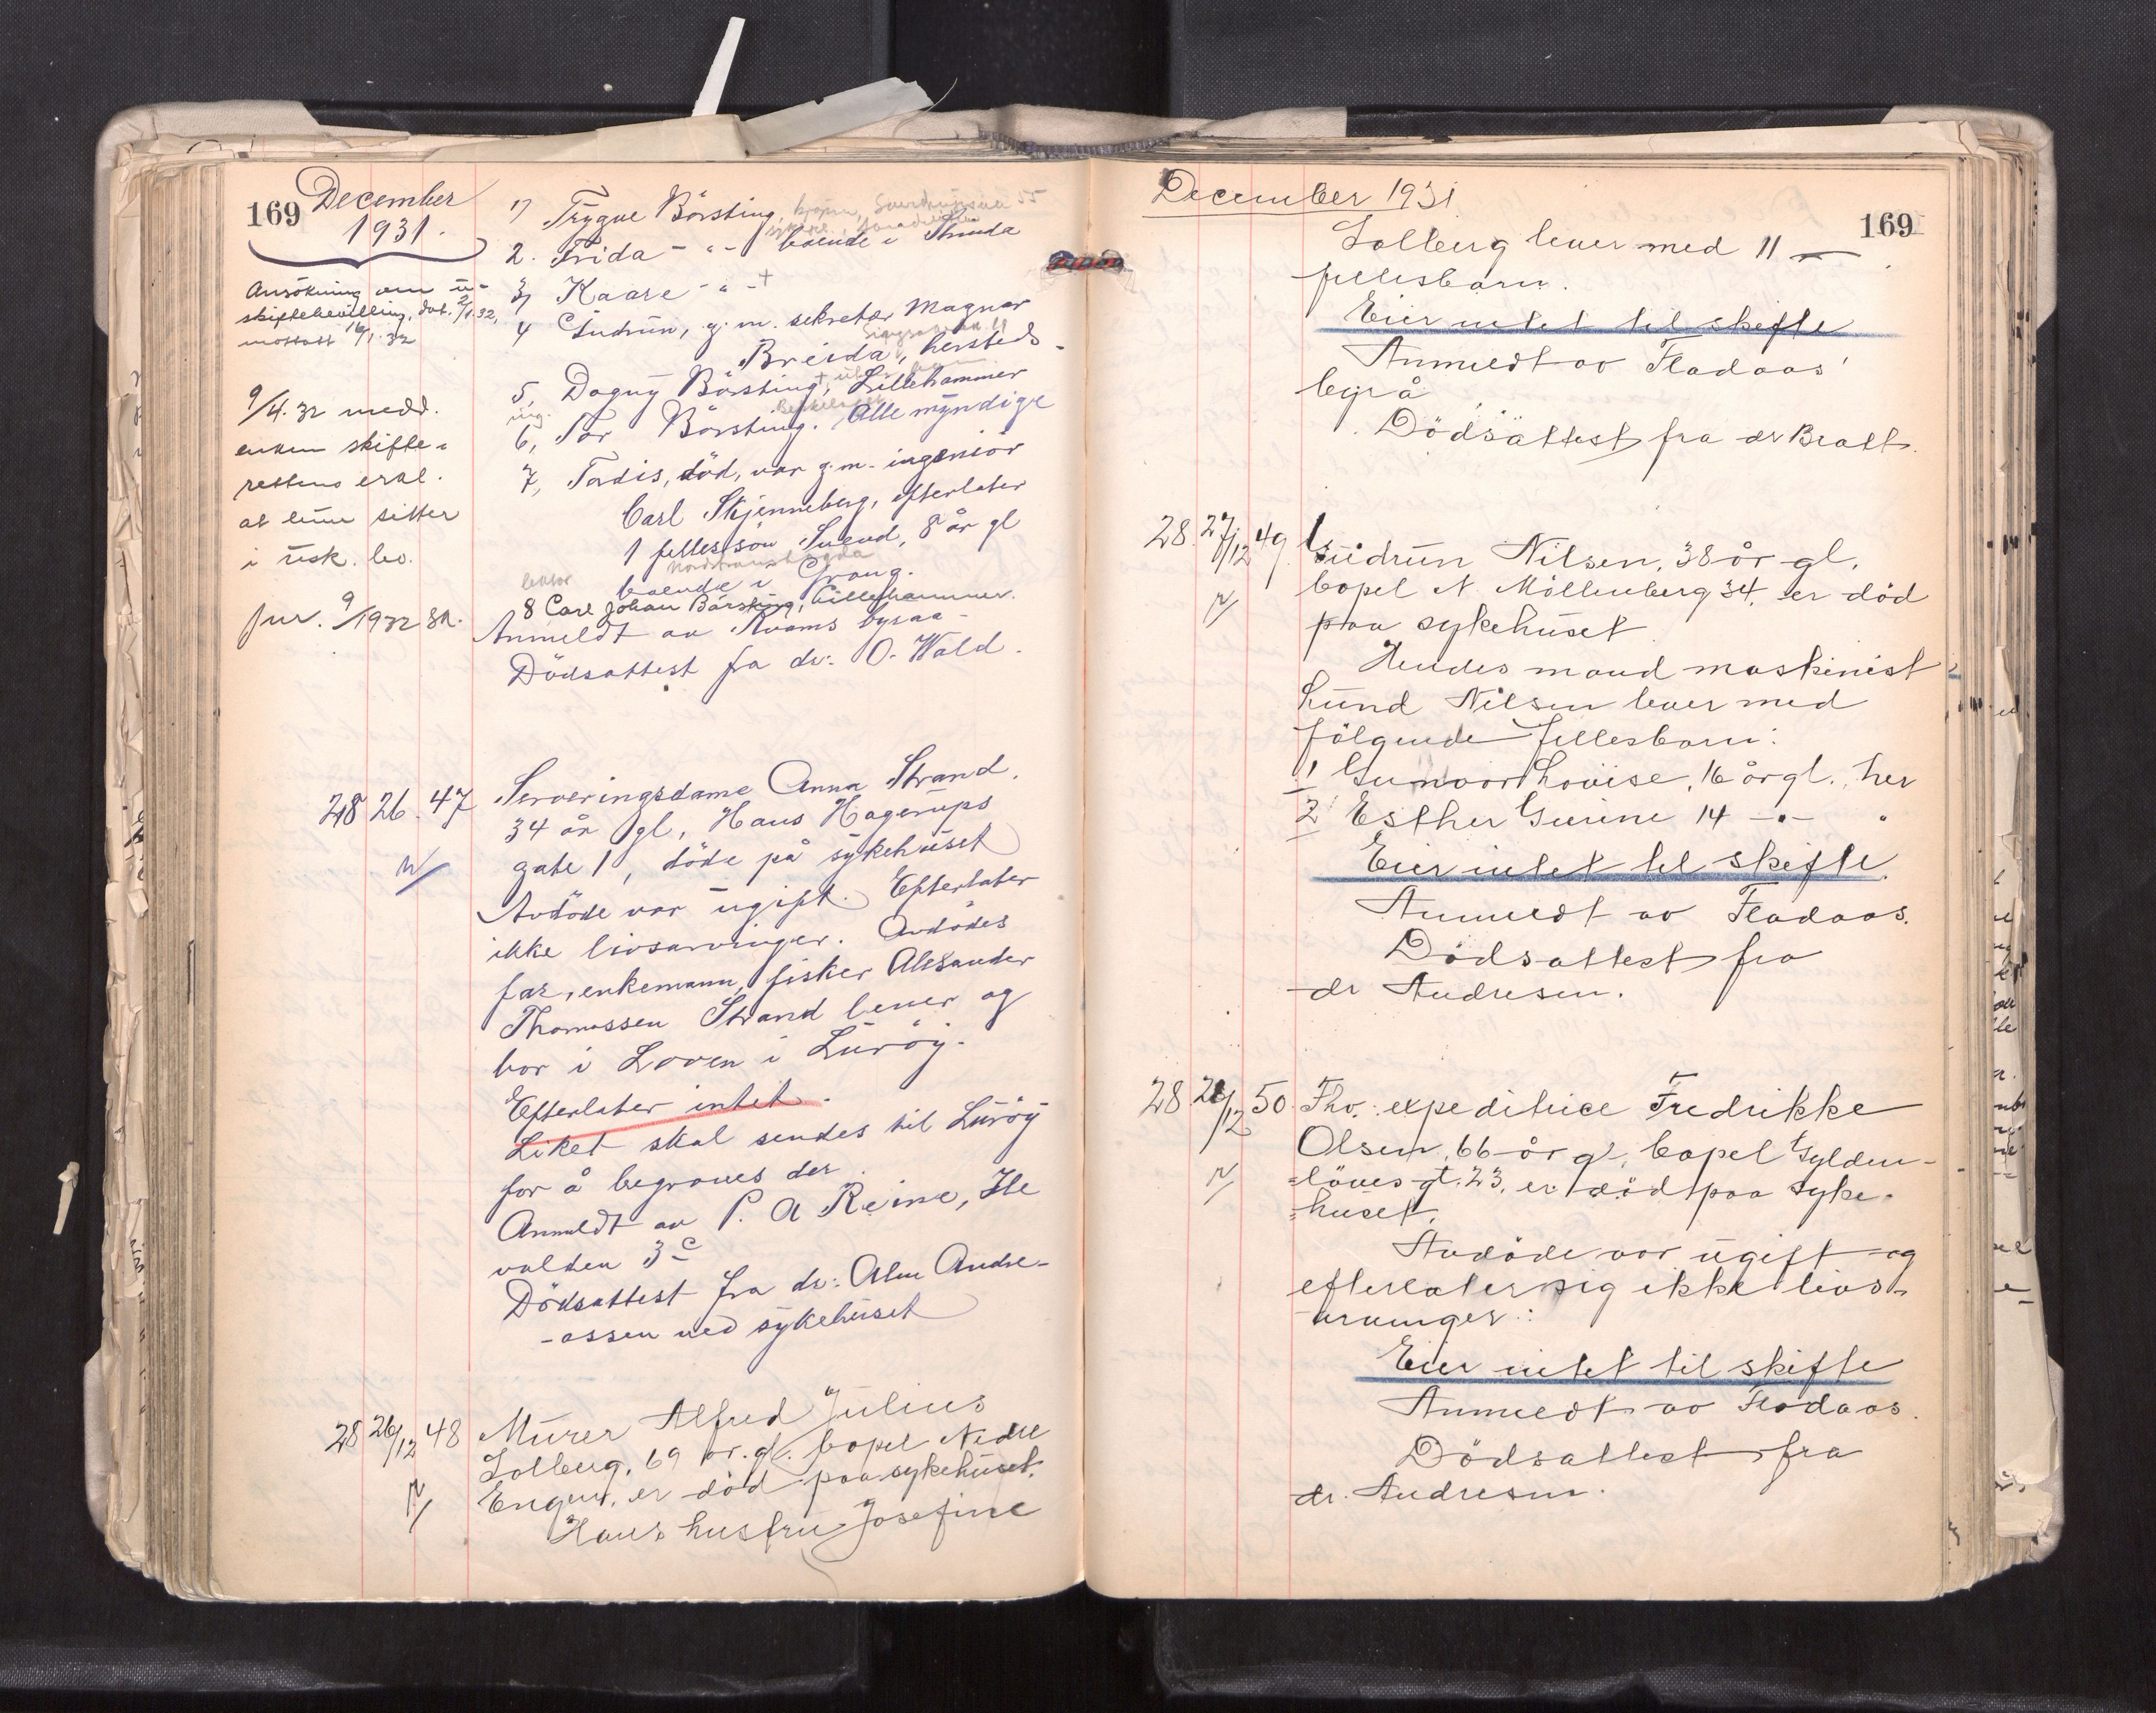 169 December
1931.
Ansökning om u-
skiftebevilling, dat. 2/1.32,
mottatt 16/1.32
9/4.32 medd.
enken skifte-
rettens erkl.
at hun sitter
i usk. bo.
9/1932
1) Trygve Börsting,
2. Frida - " - boende i Strinda
3) Kaare - " - +
4 Gudrun, g. m. sekretær Magnar
Breida, hersteds.
5, Dagny Börsting, Lillehammer
ing.
6, Tor Börsting. Alle myndige
7, Tordis, död, var g.m. ingeniör
Carl Skjenneberg, efterlater
1 fellessön Svend, 8 år gl
boende i Grong.
lektor
8 Carl Johan Börsting, Lillehammer.
Anmeldt av Kvams byraa
Dödsattest fra dr. O. Wald.
28 26. 47 Serveringsdame Anna Strand,
34 år gl, Hans Hagerups
gate 1, döde på sykehuset
Avdöde var ugift. Efterlater
ikke livsarvinger. Avdödes
far, enkemann, fisker Alexander
Thomassen Strand lever og
bor i Loven i Luröy.
Efterlater intet.
Liket skal sendes til Luröy
for å begraves der.
Anmeldt av P. A Reine, Ile
volden 3c
Dödsattest fra dr: Alm Andre-
-assen ved sykehuset
28 26/12 48 Murer Alfred Julius
Solberg, 69 år. gl. bopel Nedre
Engen, er död paa sykehuset.
Hans hustru Josefine
December 1931
169
Solberg lever med 11
fellesbarn.
Eier intet til skifte
Anmeldt av Fladaas'
byrå
Dödsattest fra dr Bratt.
28. 27/12 49. Gudrun Nilsen, 38 år gl,
bopel N Möllenberg 34, er död
paa sykehuset
Hendes mand maskinist
Kund Nilsen lever med
fölgende fellesbarn:
1 Gunvor Lovise, 16 år gl., her
2 Esther Gurine 14 - " - "
Eier intet til skifte.
Anmeldt av Fladaas.
Dödsattest fra
dr Andresen.
28. 28/12 50. Fhv. expeditrice Fredrikke
Olsen, 66 år gl, bopel Gylden-
=löves gt. 23, er död paa syke-
=huset.
Avdöde var ugift og
efterlater sig ikke livs-
arvinger:
Eier intet til skifte
Anmeldt av Fladaas.
Dödsattest fra
dr. Andresen.